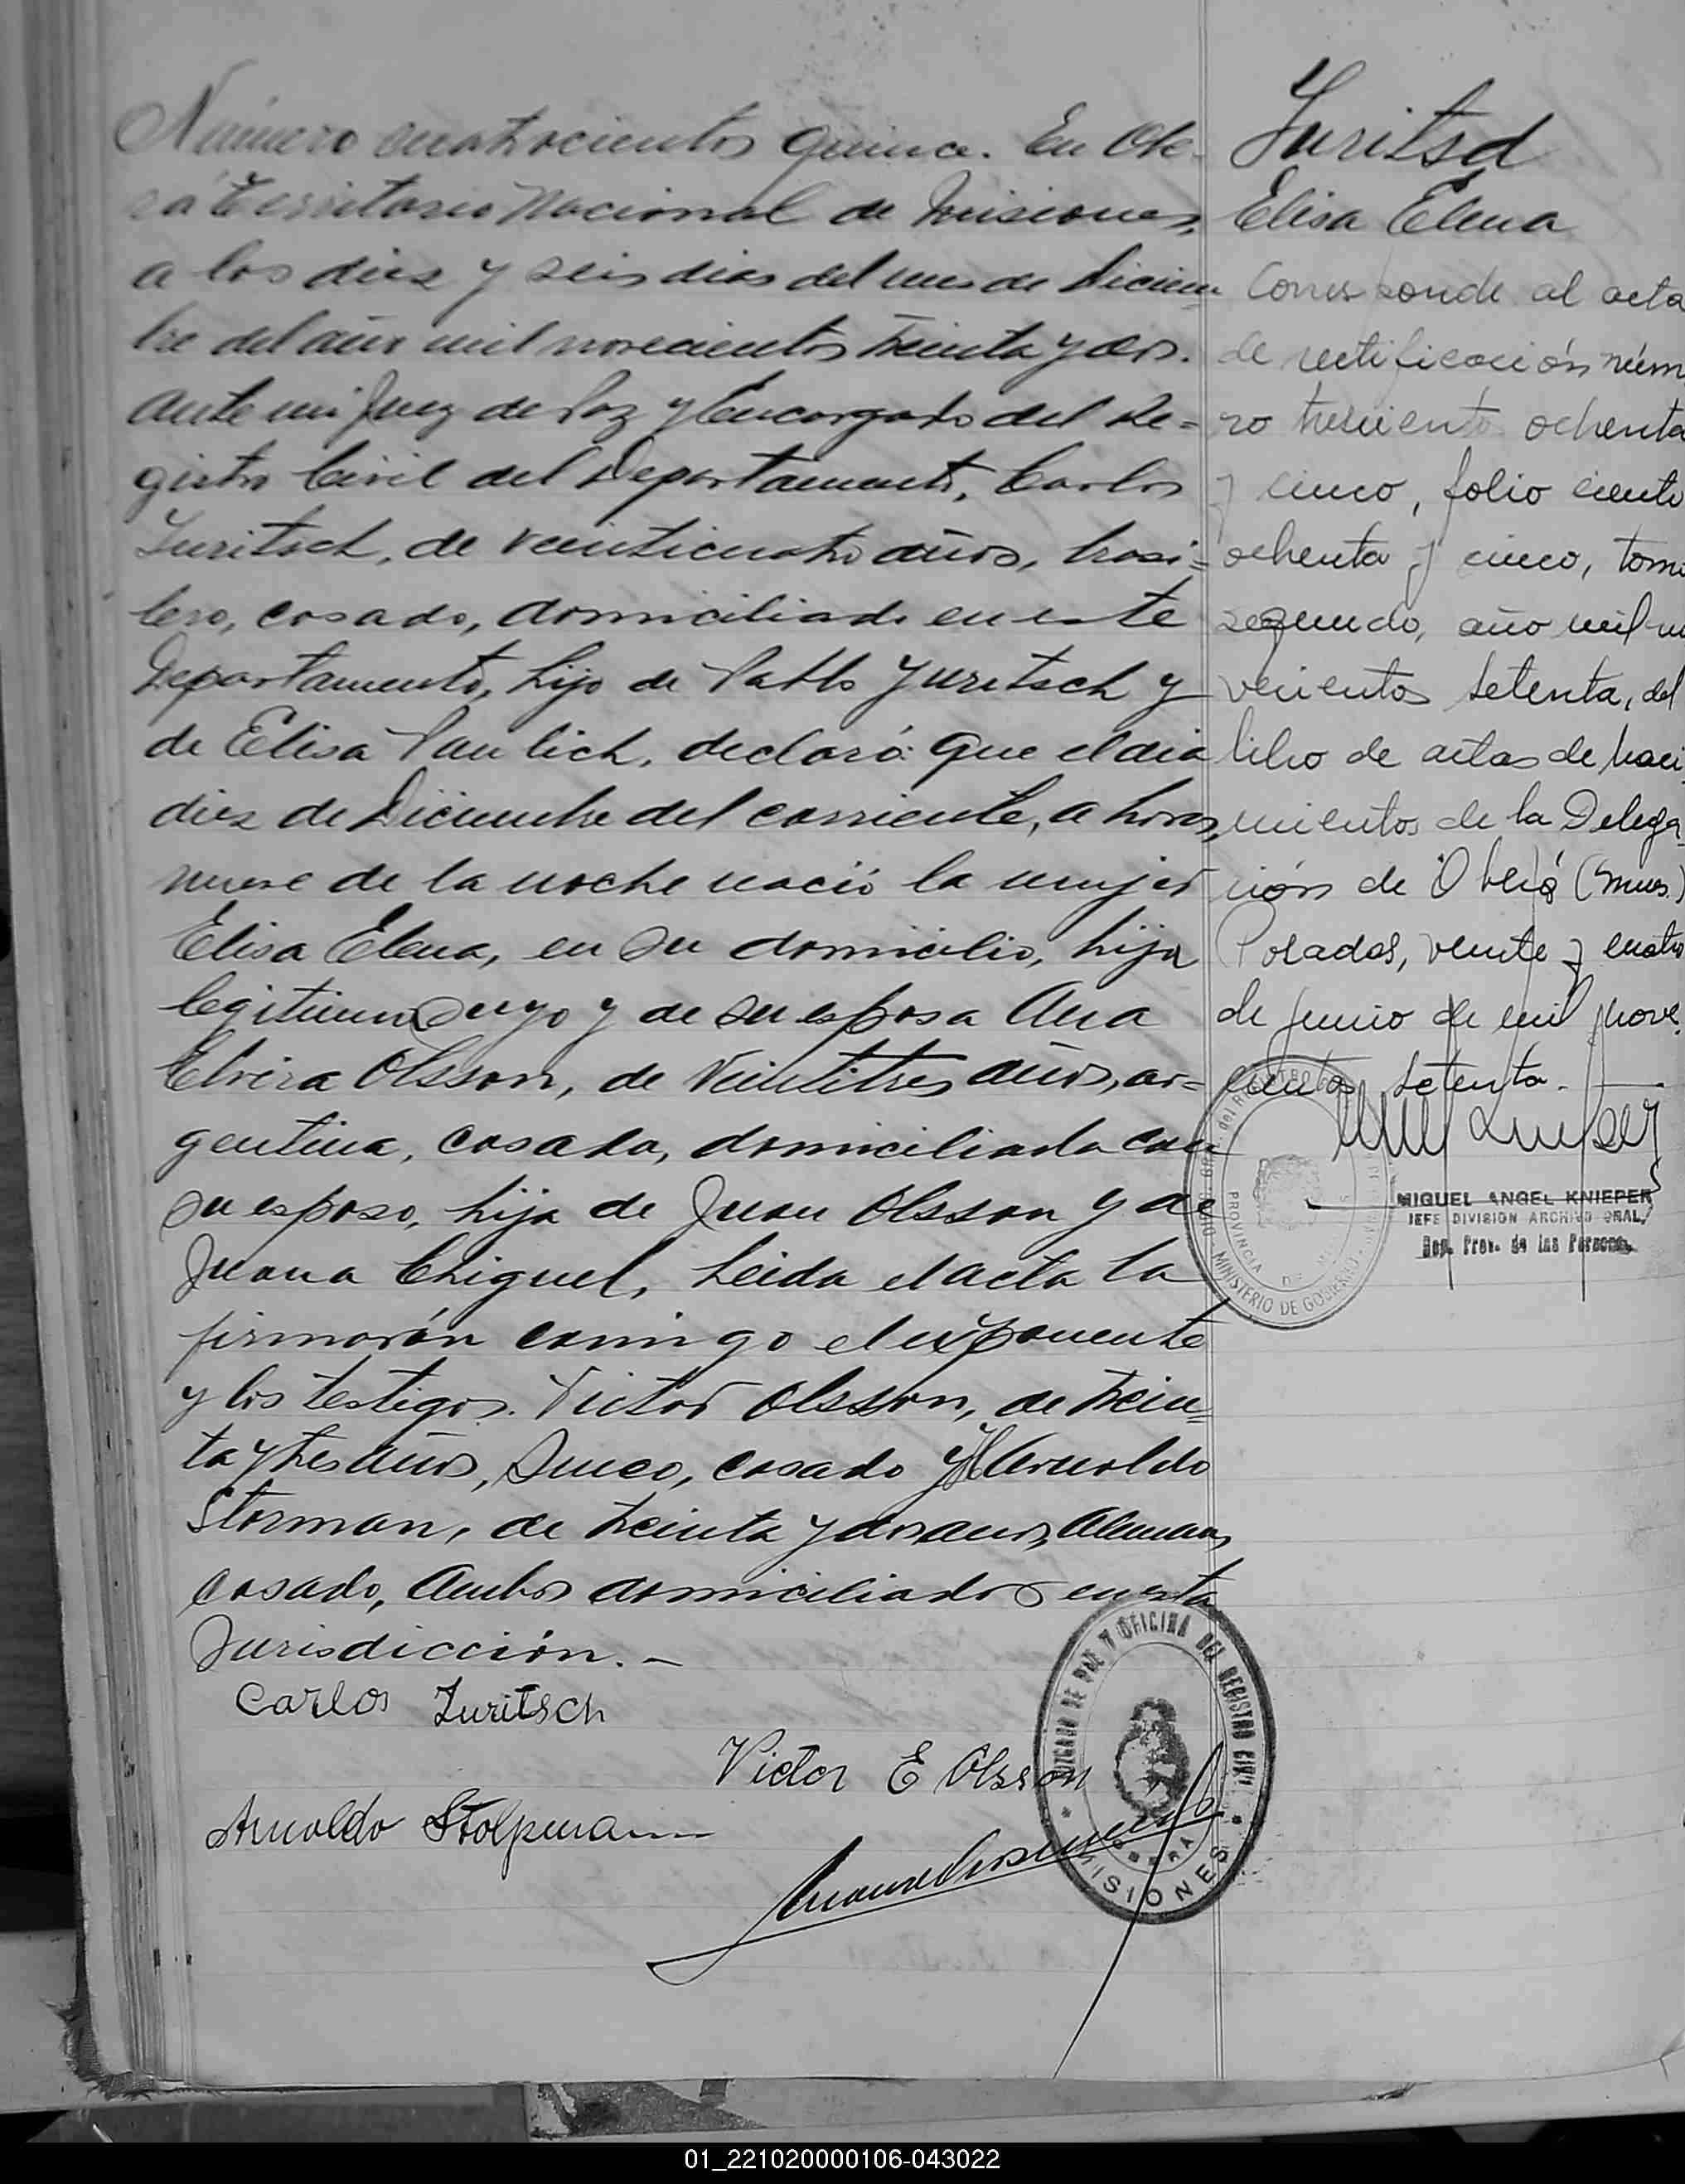 Número cuatrocientos quince. En Obe-
rá Territorio Nacional de Misiones,
a los diez y seis dias del mes de Diciem
bre del año mil novecientos treinta y dos.
Ante mi Juez de Paz y Encargado del Re=
gistro Civil del Departamento, Carlos
Juritsch, de veinticuatro años, brasi=
lero, casado, domiciliado en este
Departamento, hijo de Pablo Juritsch y
de Elisa Paulich, declaró: Que el dia
diez de Diciembre del corriente, a horas
nueve de la noche nació la mujer
Elisa Elena, en su domicilio, hija
legitima suya y de su esposa Ana
Elvira Olsson, de veintitres años, ar=
gentina, casada, domiciliada con
su esposo, hija de Juan Olsson y de
Juana Chiguel, Leida el acta la
firmarón conmigo el exponente
y los testigos. Victor Olsson, de trein=
ta y tres años, Sueco, casado y Arnoldo
Storman, de treinta y dos anos, Aleman,
casado, Ambos domiciliados en esta
Jurisdicción.-
Carlos Juritsch
Victor E Olsson
Arnoldo Stolpmann
JUZGADO DE PAZ Y OFICINA DEL REGISTRO CIVIL
OBERA
MISIONES
Juritsch
Elisa Elena
Corresponde al acta
de rectificación núm
ro tresciento ochenta
y cinco, folio ciento
ochenta y cinco, tomo
segundo, año mil no
vecientos setenta, del
libro de actas de naci
mientos de la Delega
ción de Oberá (Mnes.)
Posadas, veinte y cuatro
de junio de mil nove
cientos setenta.-
PROVINCIA DE
MINISTERIO DE GOBIERNO
MIGUEL ANGEL KNIEPER
JEFE DIVISION ARCHIVO GRAL.
Reg. Prov. de las Personas
01_221020000106-043022